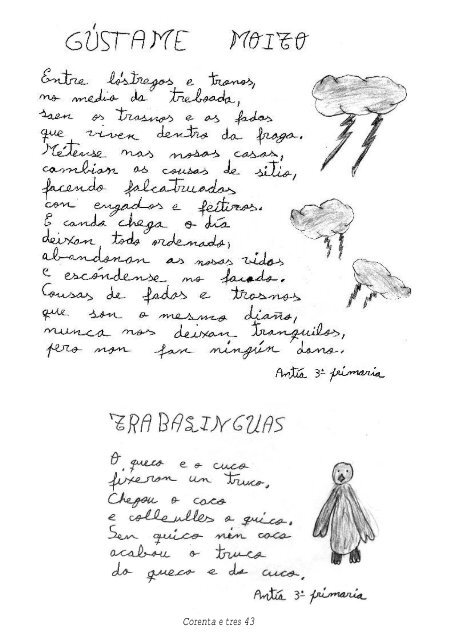 GÚSTAME MOITO
Entre lóstregos e tronos,
no medio da treboada,
saen os trasnos e as fadas
que viven dentro da fraga.
Métense nas nosas casas,
cambian as cousas de sitio,
facendo falcatruadas
con engados e feitizos.
E canda chega o día
deixan todo ordenado,
abandonan as nosas vidas
e escóndense no faiado.
Cousas de fadas e trasnos
que son o mesmo diaño,
nunca nos deixan tranquilos,
pero non fan ningún dano.
Antía 3ª primaria
TRABALINGUAS
O queco e o cuco
fixeron un truco.
Chegou o coco
e colleulles o quico.
Sen quico nin coco
acabou o truco
do queco e do cuco.
Antía 3ª primaria
Corenta e tres 43